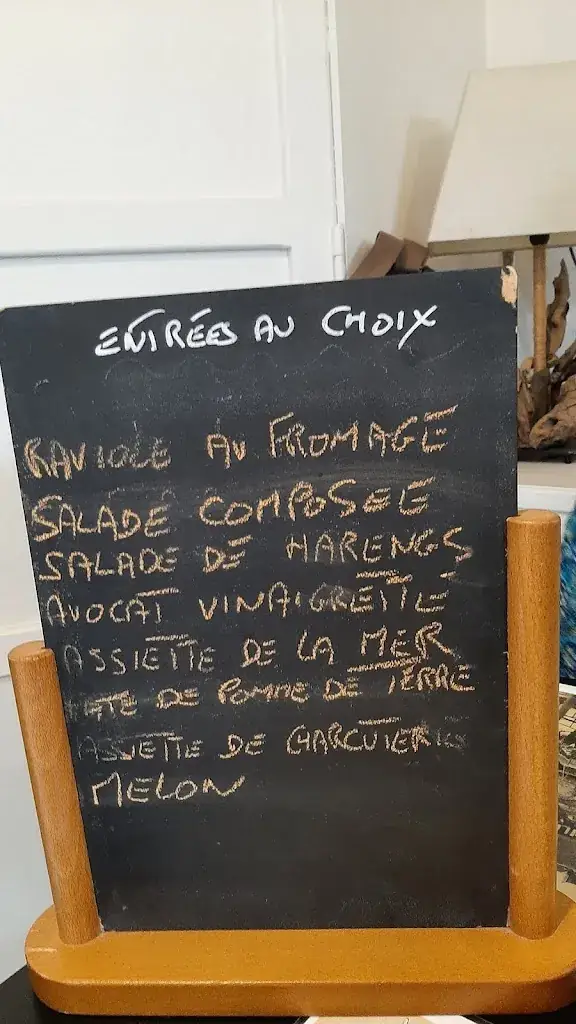 ENTRÉES AU CHOIX
RAVIOLE AU FROMAGE
SALADE COMPOSEE
SALADE DE HARENGS
AVOCAT VINAIGRETTE
ASSIETTE DE LA MER
DE POMME DE TERRE
ASSIETTE DE CHARCUTERIES
MELON